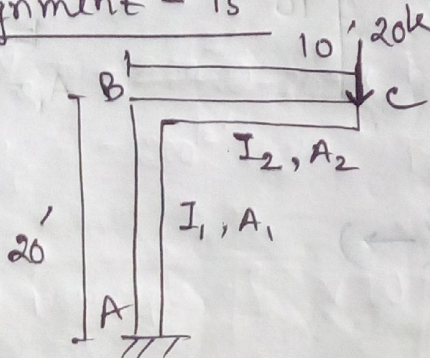 gnment - 15
10' 20k
B C
I₂, A₂
I₁, A₁
20'
A